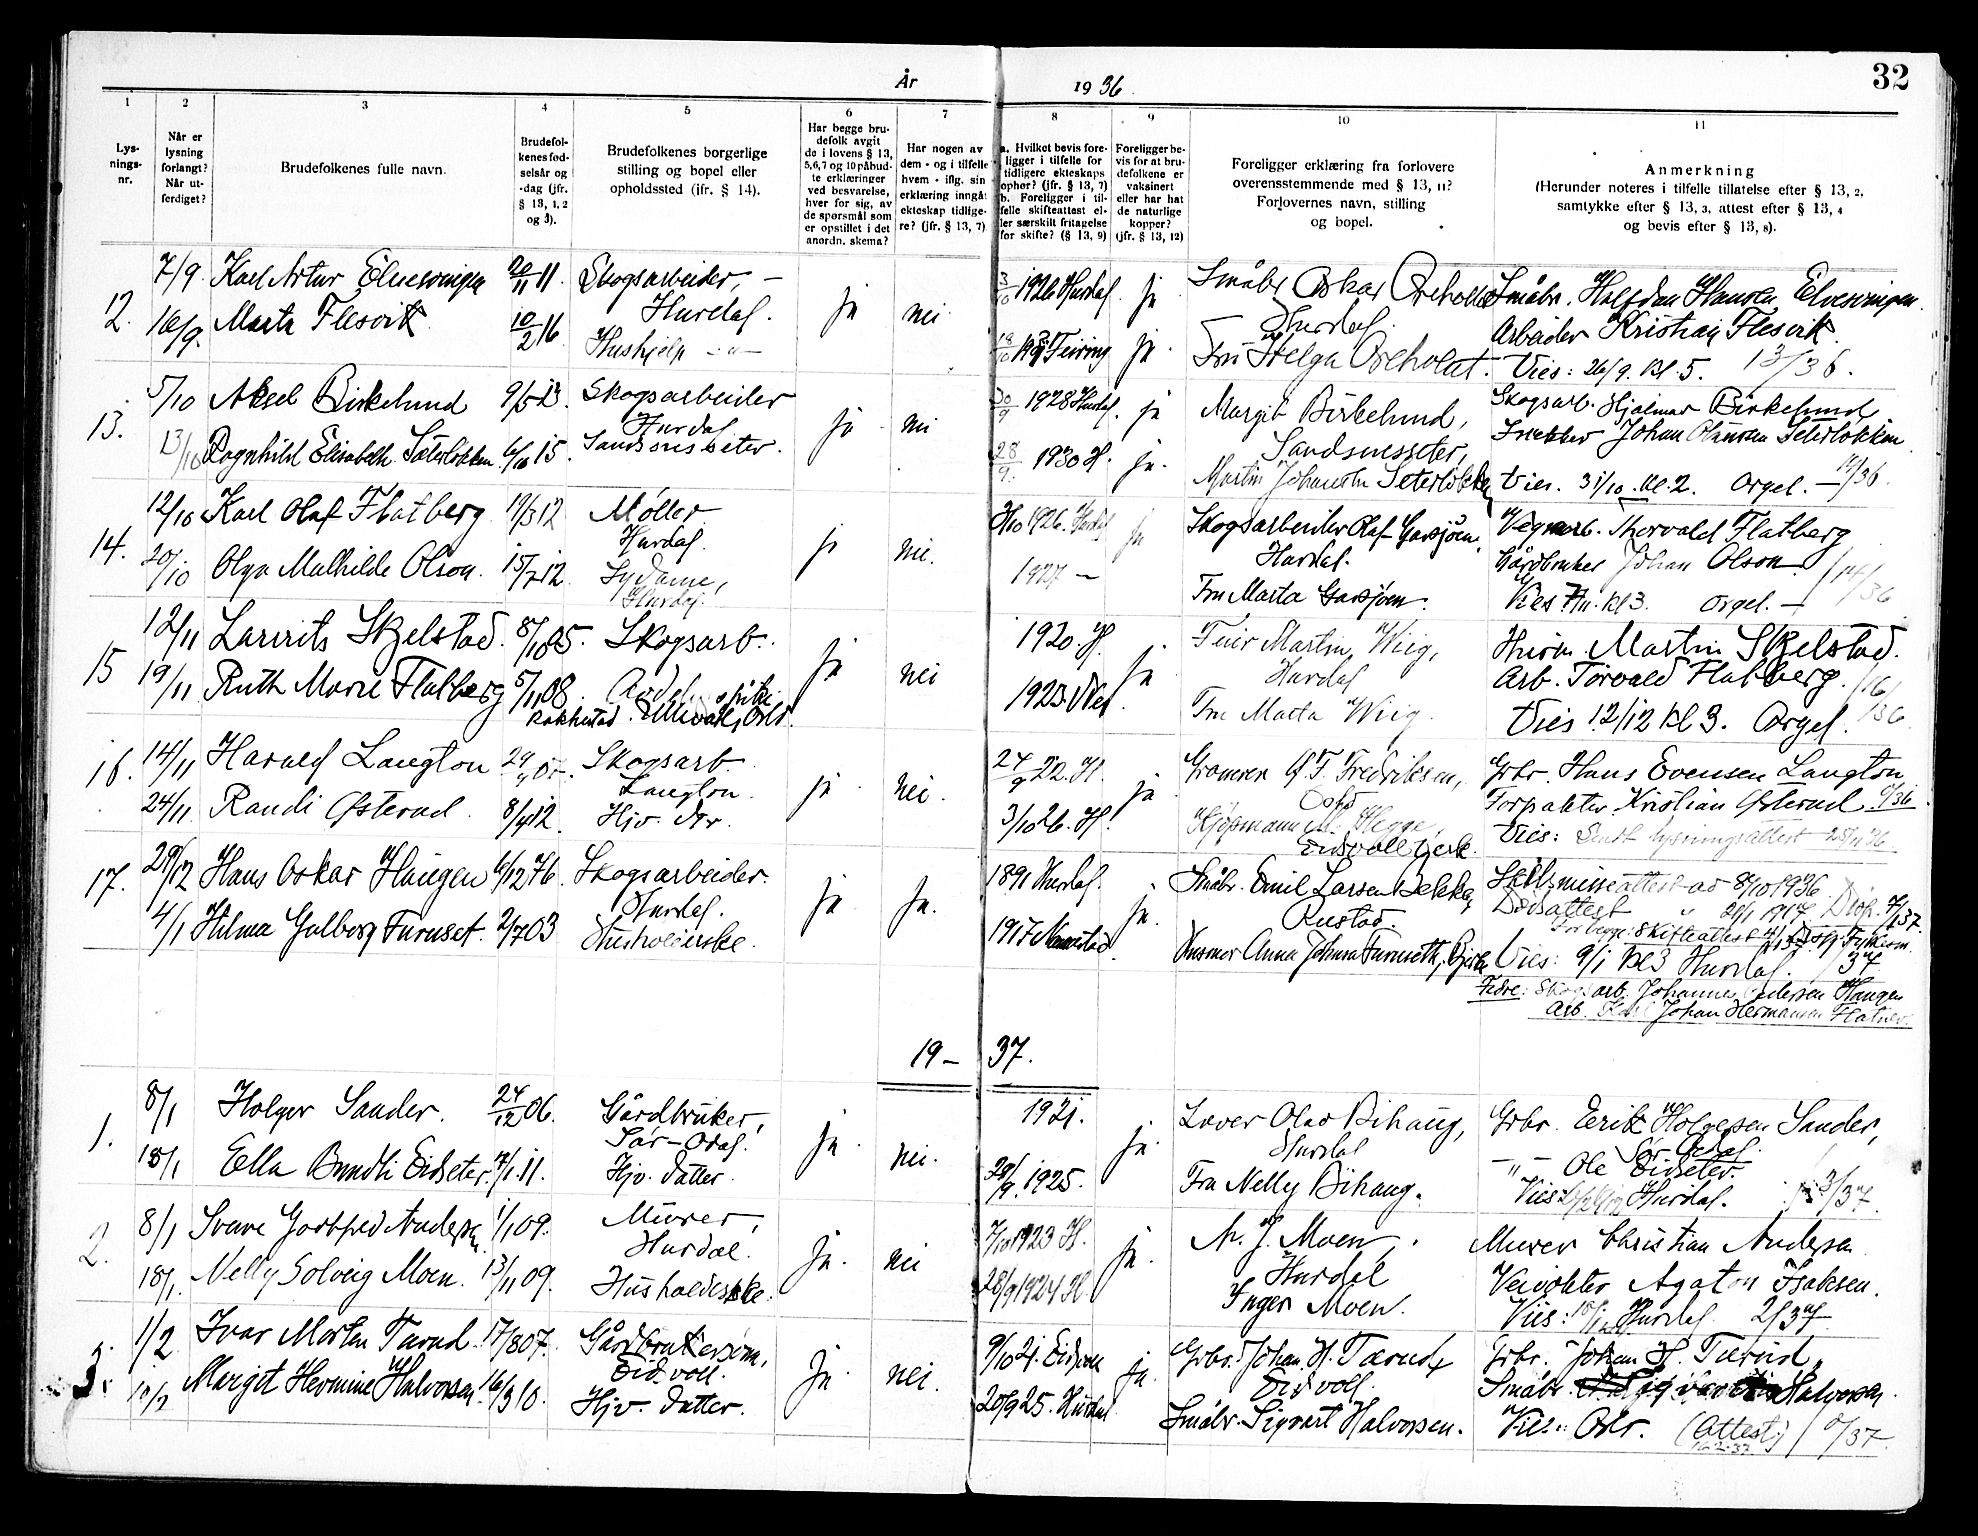 År 1936.
32
1
2
3
4
5
6
7
8
9
10
11
Lys-
nings-
nr.
Når er
lysning
forlangt?
Når ut-
ferdiget?
Brudefolkenes fulle navn.
Brudefol-
kenes fød-
selsår og
-dag (jfr.
§ 13, 1, 2
og 3).
Brudefolkenes borgerlige
stilling og bopel eller
opholdssted (jfr. § 14).
Har begge bru-
defolk avgit
de i lovens § 13,
5,6,7 og 10 påbud-
te erklæringer
ved besvarelse,
hver for sig, av
de spørsmål som
er opstillet i det
anordn. skema?
Har nogen av
dem - og i tilfelle
hvem - iflg. sin
erklæring inngåt
ekteskap tidlige-
re? (jfr. § 13, 7)
a. Hvilket bevis fore-
ligger i tilfelle for
tidligere ekteskaps
ophør? (jfr. § 13, 7)
b. Foreligger i til-
felle skifteattest el-
ler særskilt fritagelse
for skifte? (§ 13, 9)
Foreligger be-
vis for at bru-
defolkene er
vaksinert
eller har hat
de naturlige
kopper?
(jfr. § 13, 12)
Foreligger erklæring fra forlovere
overensstemmende med § 13, 11?
Forlovernes navn, stilling
og bopel.
Anmerkning
(Herunder noteres i tilfelle tillatelse efter § 13, 2,
samtykke efter § 13, 3, attest efter § 13, 4
og bevis efter § 13, 8).
12.
7/9 Karl Artur Elvesvingen 20/11 11. Skogsarbeider, –
Hurdal.
16/9. Marta Flesvik 10/2 16
Hushjelp – " –
ja nei
3/10 1926 Hurdal. ja
ja.
Småbr Oskar Oreholdt
Hurdal.
Fru Helga Oreholdt.
Småbr. Halfdan Hansen Elvesvingen.
Arbeider Kristian Flesvik.
Vies: 26/9. kl. 5. 13/36.
13.
5/10 Aksel Birkelund 9/5 13. Skogsarbeider
Hurdal
13/10 Ragnhild Elisabeth Seterløkken 6/10 15. Sandsnesseter.
ja nei
30/9 1928 Hurdal. ja
28/9. 1930 H. ja.
Margit Birkelund,
Sandsnesseter,
Martin Johansen Seterløkken
Skogsarb. Hjalmar Birkelund
Johan Olausen Seterløkken
Vies. 31/10. kl. 2. Orgel. – 14/36
14.
12/10 Karl Olaf Flatberg 19/3 12 Møller
Hurdal.
20/10 Olga Mathilde Olson. 15/7 12. Sydame,
Hurdal.
ja nei.
1926. Hurdal ja
1927 –
Skogsarbeider Olaf Garsjøen,
Hurdal.
Fru Marta Garsjøen.
Vegarb. Thorvald Flatberg
Gårdbruker Johan Olson.
Vies 7/11. kl 3. Orgel. – 14/36
15
12/11 Lauritz Skjelstad. 8/10 05. Skogsarb.
19/11 Ruth Marie Flatberg 5/11 08.
Ullevål, Oslo.
ja nei
1920. H. ja
1923.
Martin Wiig,
Hurdal
Fru Marta Wiig.
Martin Skjelstad.
Arb. Torvald Flatberg. 16/36
Vies 12/12 kl 3. Orgel.
16.
14/11 Harald Langton 29/4 07. Skogsarb.
Langton.
24/11 Randi Østerud 8/4 12. Hjv. dtr.
ja nei.
24/9 22. H. ja
3/10 26. H.
Fredriksen,
Oslo
Kjøpmann Hegge,
Eidsvoll Verk.
Grbr. Hans Evensen Langton
Forpakter Kristian Østerud
Vies: Sendt lysningsattest 25/11 36
17.
29/12 Hans Oskar Haugen 6/12 76. Skogsarbeider.
Hurdal.
4/1 Hilma Gulborg Furuset. 2/7 03 Husholderske.
ja ja.
1891 Hurdal. ja.
1917 Nannestad.
Småbr. Emil Larsen Bekke,
Rustad
Anna Johna Furuseth,
Skilsmisseattest av 8/10 1936
Dødsattest " 21/1 1917.
For begge: skifteattest
Vies: 9/1 kl 3 Hurdal. /37
Fedre: Skogsarb. Johannes Pedersen Haugen
Arb. Karl Johan Hermansen
19 – 37.
1.
8/1 Holger Sander. 24/12 06. Gårdbruker,
Sør-Odal.
18/1 Ella Bundli Eidseter. 11. Hjv. datter.
ja nei.
1921. ja.
28/9. 1925.
Olav Bihaug,
Hurdal
Fru Nelly Bihaug.
Grbr. Eerik Holgesen Sander,
Sør-Odal.
– " – Ole Eidseter.
Vies Hurdal. 3/37.
2.
8/1 Svare Gottfred Andersen 1/1 09. Murer,
Hurdal.
18/1 Nelly Solveig Moen. 13/11 09. Husholderske.
ja. nei
7/10 1923 H. ja.
28/9 1924 H.
M. J. Moen,
Hurdal
Inger Moen.
Murer Christian Andersen
Veivokter Agaton Isaksen.
Vies: Hurdal. 2/37
3.
1/2 Ivar Morten Tærud 17/8 07. Gårdbrukersønn,
Eidsvoll.
Margit Hermine Halvorsen 16/3 10. Hjv. datter.
ja nei.
9/10 21. Eidsvoll ja.
20/9 25. Hurdal
Grbr. Johan H. Tærud,
Eidsvoll
Småbr. Sigvart Halvorsen.
Grbr. Johan H. Tærud,
Småbr. Halvorsen
Vies: Oslo. (Attest)
16.2.37